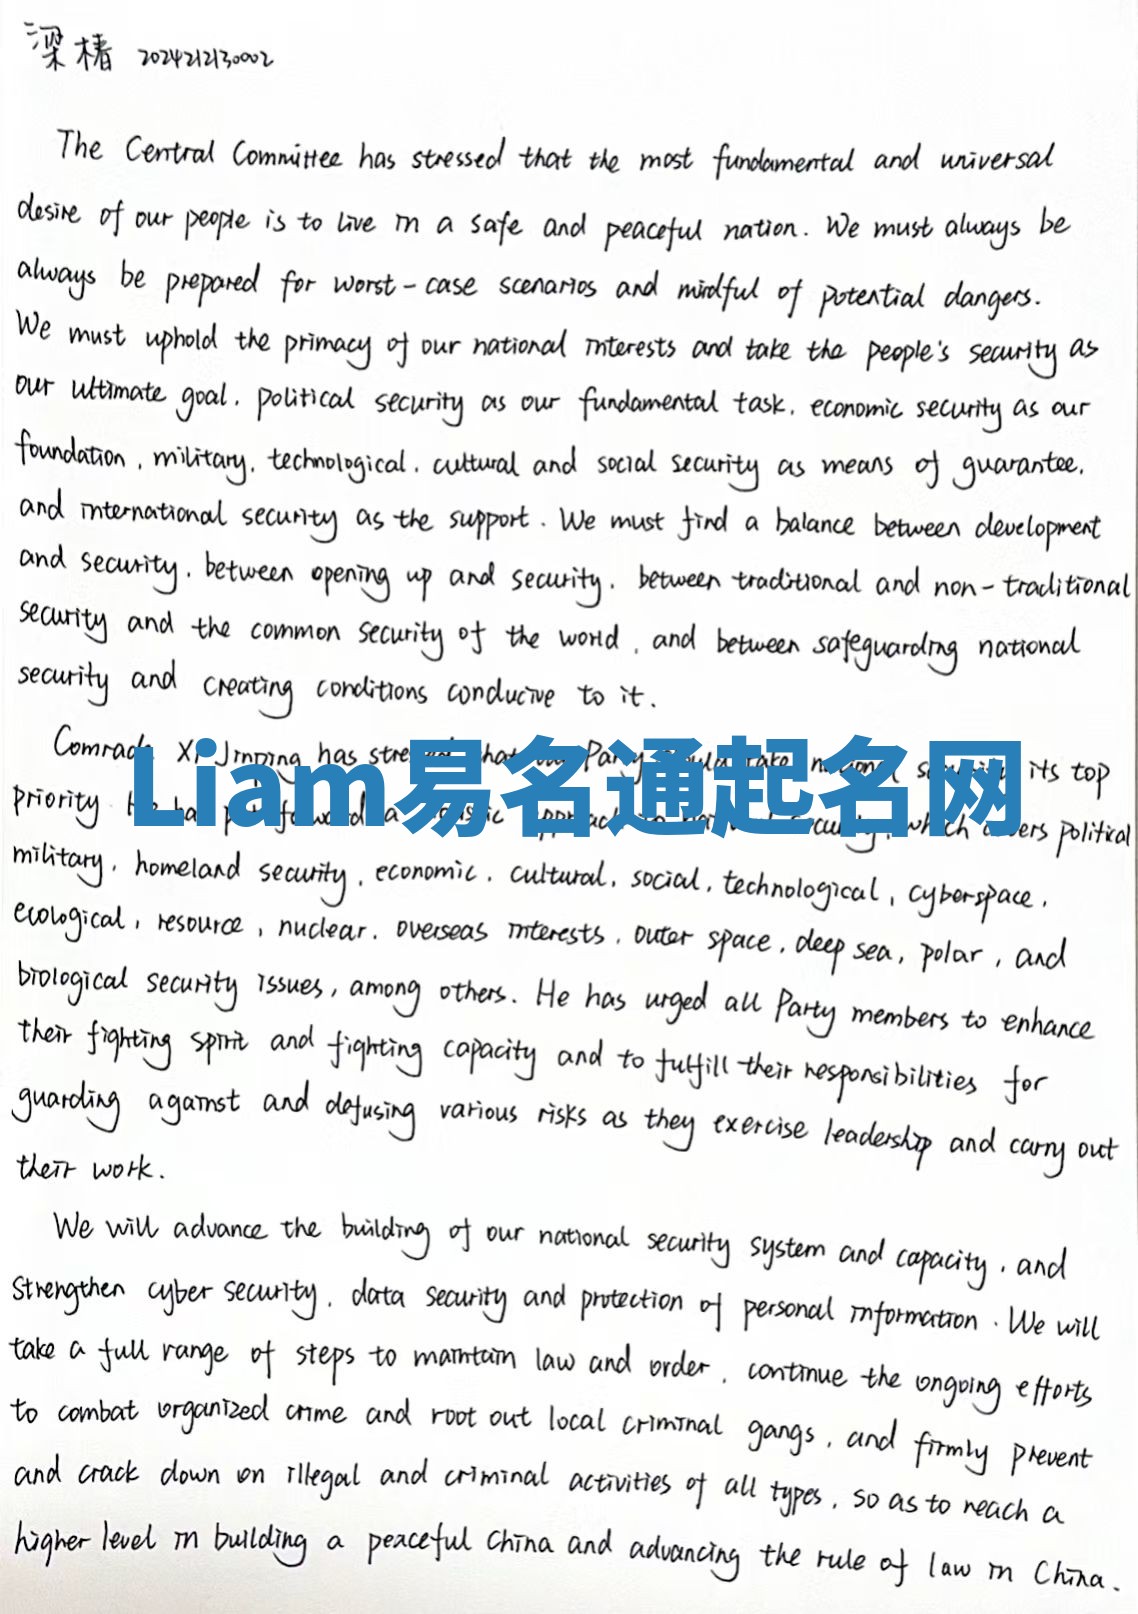 梁椿 2024212130002
The Central Committee has stressed that the most fundamental and universal
desire of our people is to live in a safe and peaceful nation. We must always be
always be prepared for worst-case scenarios and mindful of potential dangers.
We must uphold the primacy of our national interests and take the people's security as
our ultimate goal, political security as our fundamental task, economic security as our
foundation, military, technological, cultural and social security as means of guarantee,
and international security as the support. We must find a balance between development
and security, between opening up and security, between traditional and non-traditional
security and the common security of the world, and between safeguarding national
security and creating conditions conducive to it.
Comrade Xi Jinping has its top
Liam易名通起名网
priority which covers political
military, homeland security, economic, cultural, social, technological, cyberspace,
ecological, resource, nuclear, overseas interests, outer space, deep sea, polar, and
biological security issues, among others. He has urged all Party members to enhance
their fighting spirit and fighting capacity and to fulfill their responsibilities for
guarding against and defusing various risks as they exercise leadership and carry out
their work.
We will advance the building of our national security system and capacity, and
strengthen cyber security, data security and protection of personal information. We will
take a full range of steps to maintain law and order, continue the ongoing efforts
to combat organized crime and root out local criminal gangs, and firmly prevent
and crack down on illegal and criminal activities of all types, so as to reach a
higher level in building a peaceful China and advancing the rule of law in China.